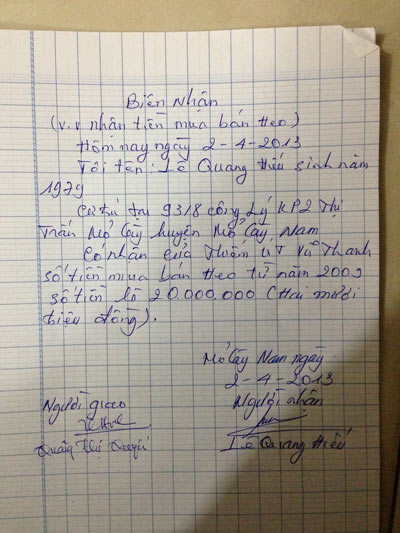 Biên Nhận
(v.v nhận tiền mua bán Heo)
Hôm nay ngày 2-4-2013
Tôi tên: Lê Quang Hiếu sinh năm
1979
Cư trú tại 93/8 công Lý KP2 Thị
Trấn Mỏ Cày huyện Mỏ Cày Nam
Có nhận của Thiếm ÚT Vũ Thanh
số tiền mua bán Heo từ năm 2009
số tiền là 20.000.000 (Hai mươi
triệu đồng).
Mỏ Cày Nam ngày
2-4-2013
Người giao
Người nhận
Quảng Thị Quyế
Lê Quang Hiếu